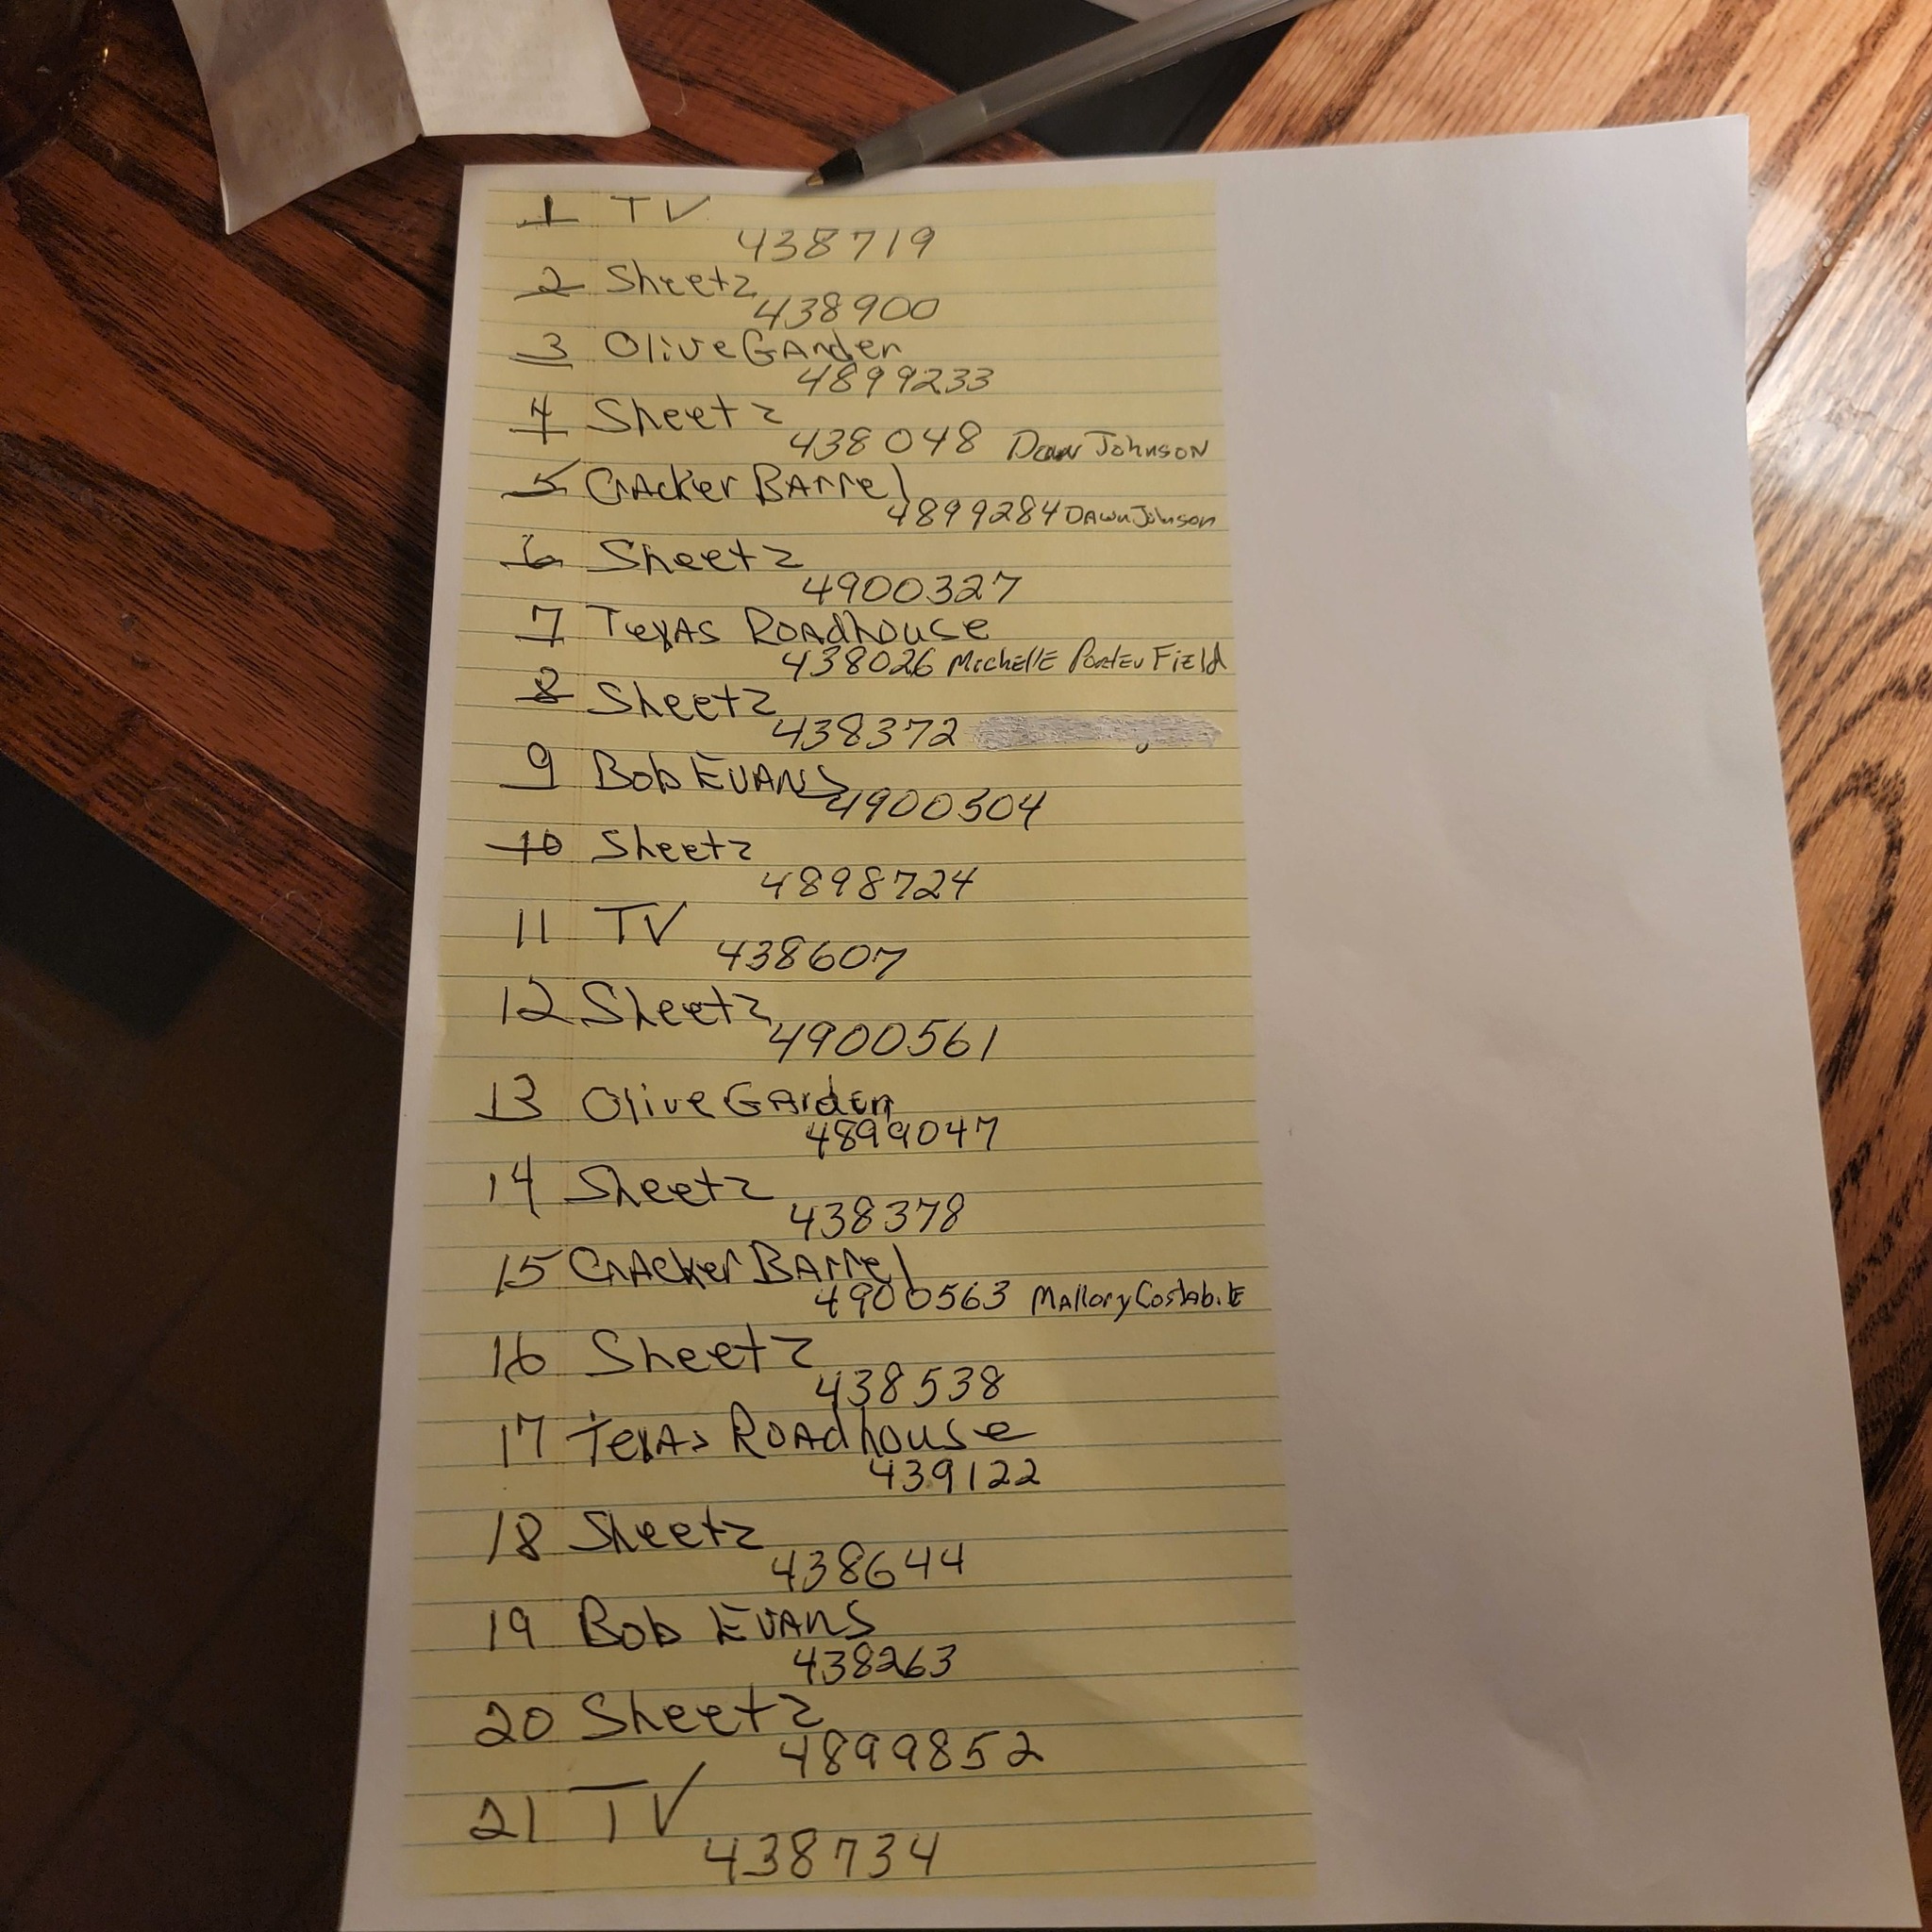 1 TV
438719
2 Sheetz
438900
3 Olive Garden
4899233
4 Sheetz
438048 Dawn Johnson
5 Cracker Barrel
4899284 Dawn Johnson
6 Sheetz
4900327
7 Texas Roadhouse
438026 Michelle Porter Field
8 Sheetz
438372
9 Bob Evans
4900504
10 Sheetz
4898724
11 TV
438607
12 Sheetz
4900561
13 Olive Garden
4899047
14 Sheetz
438378
15 Cracker Barrel
4900563 Mallory Costabile
16 Sheetz
438538
17 Texas Roadhouse
439122
18 Sheetz
438644
19 Bob Evans
438263
20 Sheetz
4899852
21 TV
438734